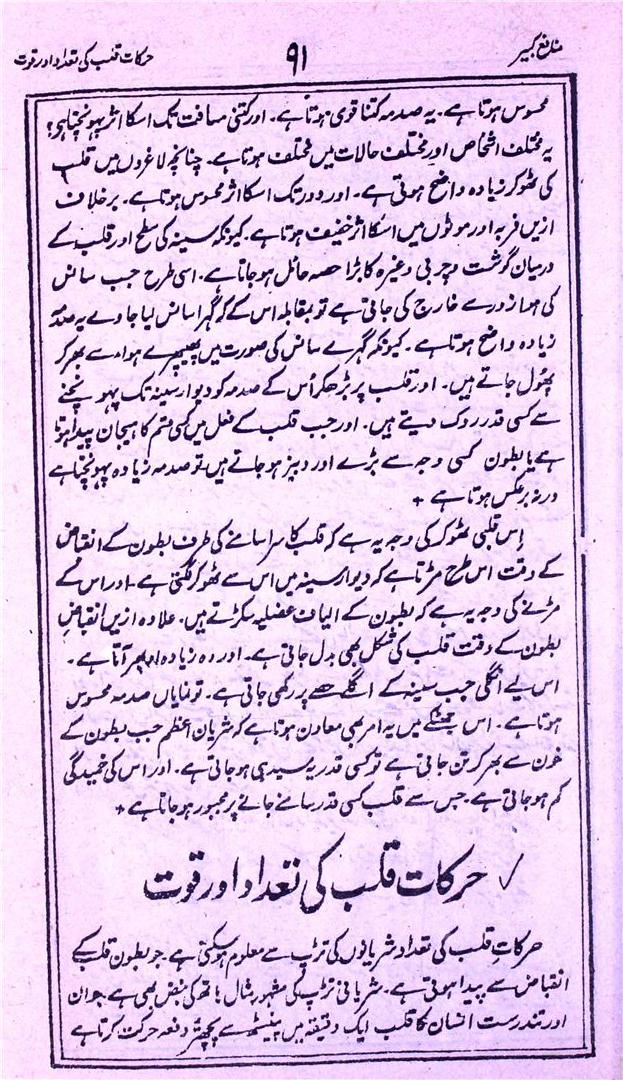 منافع کبیر
۹۱
حرکات قلب کی تعداد اور قوت
محسوس ہوتا ہے۔ یہ صدمہ کتنا قوی ہوتا ہے۔ اور کتنی مسافت تک اسکا اثر پہونچتا ہی؟
یہ مختلف اشخاص اور مختلف حالات میں مختلف ہوتا ہے۔ چنانچہ لاغروں میں قلب
کی ٹھوکر زیادہ واضح ہوتی ہے۔ اور دور تک اسکا اثر محسوس ہوتا ہے۔ برخلاف
ازیں فربہ اور موٹوں میں اسکا اثر خفیف ہوتا ہے۔ کیونکہ سینہ کی سطح اور قلب کے
درمیان گوشت و چربی وغیرہ کا بڑا حصہ حائل ہو جاتا ہے۔ اسی طرح جب سانس
کی ہوا زور سے خارج کی جاتی ہے تو بمقابلہ اس کے کہ گہرا سانس لیا جاوے یہ صدمہ
زیادہ واضح ہوتا ہے۔ کیونکہ گہرے سانس کی صورت میں پھیپھڑے ہوا سے بھر کر
پھول جاتے ہیں۔ اور قلب پر بڑھکر اُس کے صدمہ کو دیوار سینہ تک پہونچنے
سے کسی قدر روک دیتے ہیں۔ اور جب قلب کے فعل میں کسی قسم کا ہیجان پیدا ہوتا
ہے یا بطون کسی وجہ سے بڑے اور دبیز ہو جاتے ہیں تو صدمہ زیادہ پہونچتا ہے
ورنہ برعکس ہوتا ہے +
اِس قلبی ٹھوکر کی وجہ یہ ہے کہ قلب کا سرا سامنے کی طرف بطون کے انقباض
کے وقت اس طرح مڑتا ہے کہ دیوار سینہ میں اس سے ٹھوکر لگتی ہے۔ اور اس کے
مڑنے کی وجہ یہ ہے کہ بطون کے الیاف عضلیہ سکڑتے ہیں۔ علاوہ ازیں انقباضِ
بطون کے وقت قلب کی شکل بھی بدل جاتی ہے۔ اور وہ زیادہ ابھر آتا ہے۔
اس لیے انگلی جب سینہ کے اگلے حصے پر رکھی جاتی ہے۔ تو نمایاں صدمہ محسوس
ہوتا ہے۔ اس جھٹکے میں یہ امر بھی معاون ہوتا ہے کہ شریان اعظم جب بطون کے
خون سے بھر کر تن جاتی ہے تو کسی قدر یہ سیدھی ہو جاتی ہے۔ اور اس کی خمیدگی
کم ہو جاتی ہے۔ جس سے قلب کسی قدر سامنے جانے پر مجبور ہو جاتا ہے +
✓ حرکات قلب کی تعداد اور قوت
حرکاتِ قلب کی تعداد شریانوں کی تڑپ سے معلوم ہو سکتی ہے۔ جو بطون قلب کے
انقباض سے پیدا ہوتی ہے۔ شریانی تڑپ کی مشہور مثال ہاتھ کی نبض بھی ہے۔ جوان
اور تندرست انسان کا قلب ایک دقیقہ میں پینسٹھ سے پچھتر دفعہ حرکت کرتا ہے